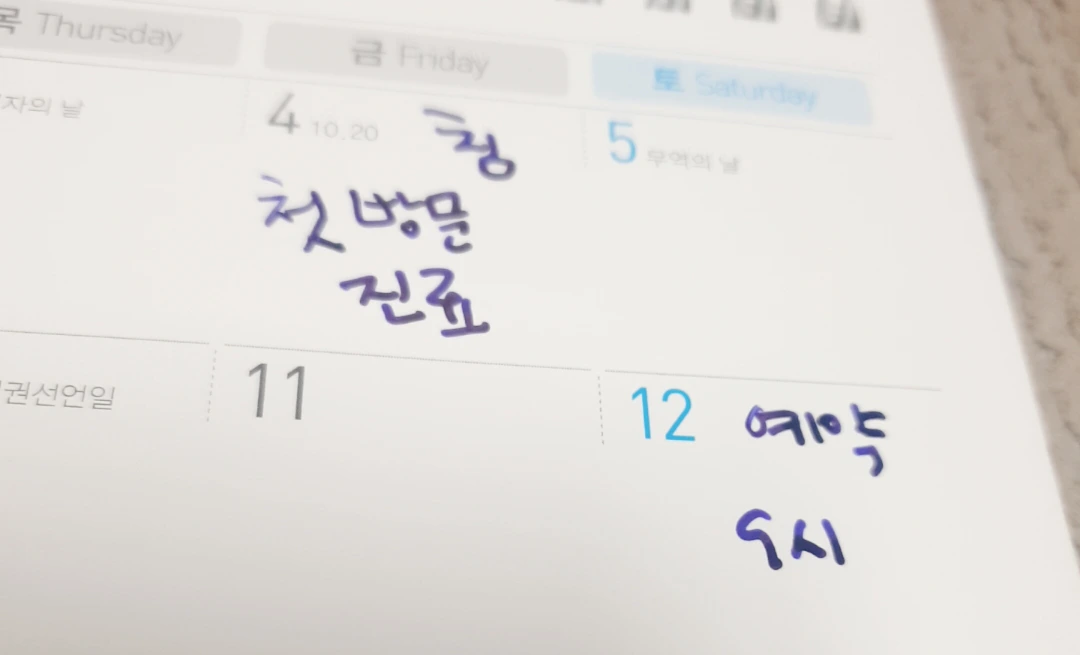 목 Thursday
금 Friday
토 Saturday
자의 날
4 10.20 청
5 무역의 날
첫 방문
진료
권선언일
11
12 예약
9시